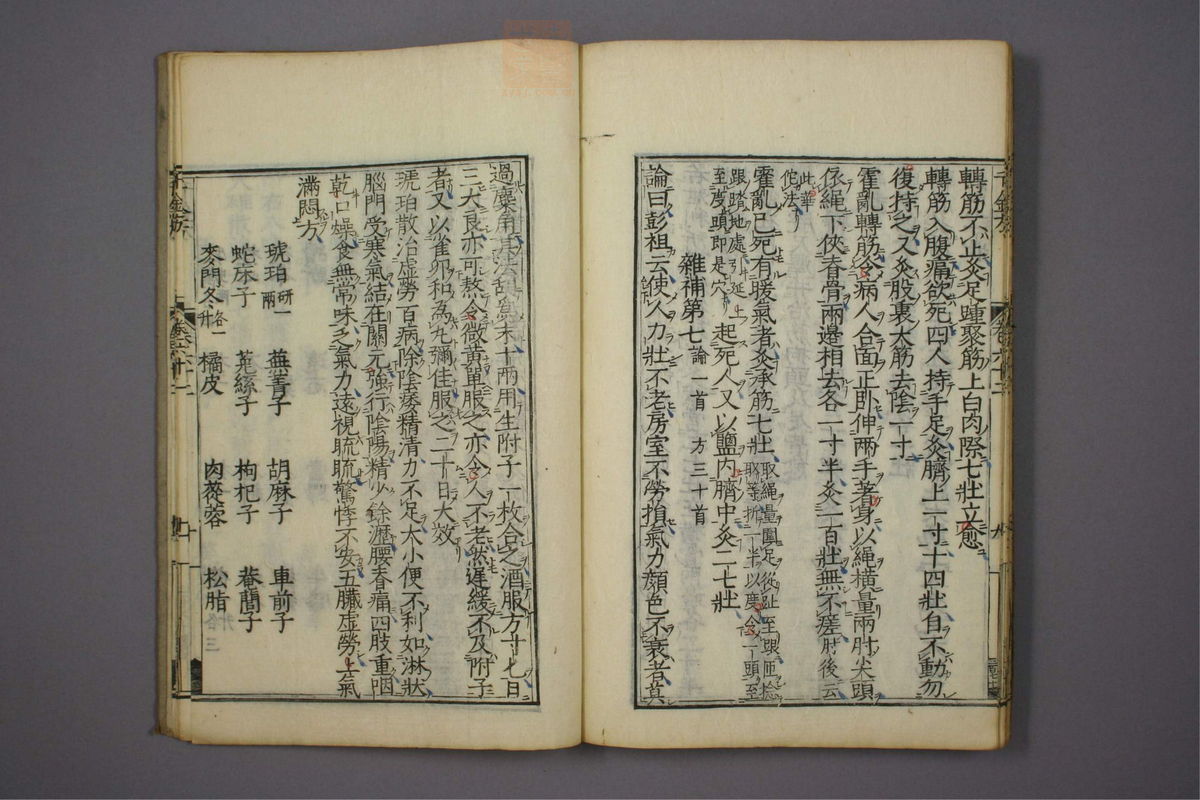 轉筋不止灸足踵聚筋上白肉際七壯立愈
轉筋入腹痛欲死四人持手足灸臍上一寸十四壯自不動勿
復持之又灸股裏大筋去陰一寸
霍亂轉筋令病人合面正臥伸兩手著身以繩橫量兩肘尖頭
依繩下俠脊骨兩邊相去各一寸半灸一百壯無不瘥肘後云
此華
佗法
霍亂已死有暖氣者灸承筋七壯取繩量圍足從趾至跟匝
取等折一半以度令一頭至
跟踏地處引延上
至度頭即是穴起死人又以鹽内臍中灸二七壯
雜補第七論一首方三十首
論曰彭祖云使人力壯不老房室不勞損氣力顏色不衰者莫
過麋角其法刮爲末十兩用生附子一枚合之酒服方寸匕日
三大良亦可熬令微黃單服之亦令人不老然遲緩不及附子
者又以雀卵和爲丸彌佳服之二十日大效
琥珀散治虛勞百病除陰痿精清力不足大小便不利如淋狀
腦門受寒氣結在關元強行陰陽精少餘瀝腰脊痛四肢重咽
乾口燥食無常味乏氣力遠視䀮䀮驚悸不安五臟虛勞上氣
滿悶方
琥珀研一兩 蕪菁子 胡麻子 車前子
蛇床子 菟絲子 枸杞子 菴䕡子
麥門冬各一升 橘皮 肉蓯蓉 松脂
千金方